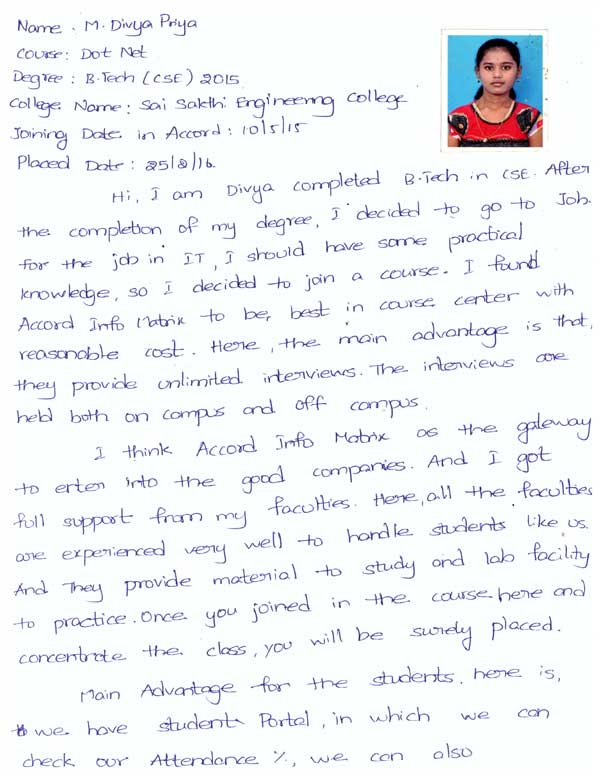 Name : M. Divya Priya
Course: Dot Net
Degree : B.Tech (CSE) 2015
College Name : Sai Sakthi Engineering College
Joining Date in Accord : 10/5/15
Placed Date : 25/2/16.
Hi, I am Divya completed B.Tech in CSE. After
the completion of my degree, I decided to go to Job.
for the job in IT, I should have some practical
knowledge, so I decided to join a course. I found
Accord Info Matrix to be, best in course center with
reasonable cost. Here, the main advantage is that,
they provide unlimited interviews. The interviews are
held both on campus and off campus.
I think Accord Info Matrix as the gateway
to enter into the good companies. And I got
full support from my faculties. Here, all the faculties
are experienced very well to handle students like us.
And They provide material to study and lab facility
to practice. Once you joined in the course here and
concentrate the class, you will be surely placed.
Main Advantage for the students, here is,
we have student Portal, in which we can
check our Attendance %, we can also